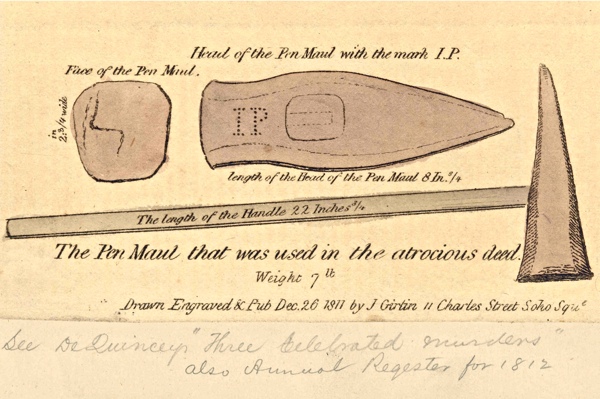 Head of the Pen Maul with the mark I.P.
Face of the Pen Maul.
in
2.3/4 wide
IP
length of the Head of the Pen Maul 8 In.s/4
The length of the Handle 22 Inches3/4
The Pen Maul that was used in the atrocious deed.
Weight 7 lb
Drawn Engraved & Pub Dec. 26 1811 by J Girtin 11 Charles Street Soho Sque
See DeQuinceys "Three Celebrated murders"
also Annual Regester for 1812